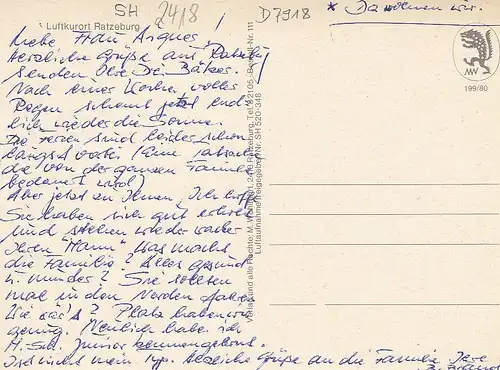 SH 2418 D7918 * Da wohnen wir.
Luftkurort Ratzeburg
Liebe Frau Arques,
herzliche Grüße aus Ratzeburg
senden Ihre Drei
Nach einer Woche volles
Regen scheint jetzt end
lich wieder die Sonne.
Die Ferien sind leider schon
längst vorbei (Eine Tatsache
die von der ganzen Familie
bedauert wird)
Aber jetzt zu Ihnen. Ich hoffe
Sie haben sich gut erholt
und stehen wieder
Ihren "Mann" Was macht
die Familie? Alles gesund
u. munter? Sie sollten
mal in den Norden fahren
Wie wär's? Platz haben wir
genug. Neulich habe ich
H. Sch. Junior kennengelernt.
Ist nicht mein Typ. Herzliche Grüße an die Familie Ihre
Verlag und alle Rechte: M. 2418 Ratzeburg, Tel. 82105 - Bestell-Nr. 111
Luftaufnahme freigegeben Nr. SH 520-348
MW
199/80